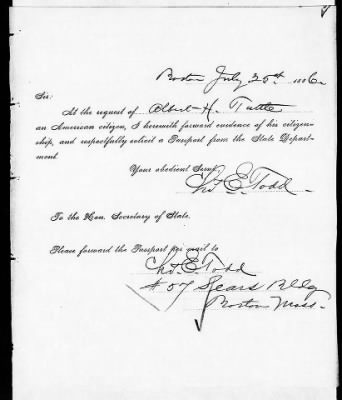 Boston July 25th 1886.
Sir:
At the request of Albert H. Tuttle
an American citizen, I herewith forward evidence of his citizen-
ship, and respectfully solicit a Passport from the State Depart-
ment.
Your obedient Serv't,
Chs. E. Todd
To the Hon. Secretary of State.
Please forward the Passport per mail to
Chs. E. Todd
# 57 Sears Bldg
Boston Mass.